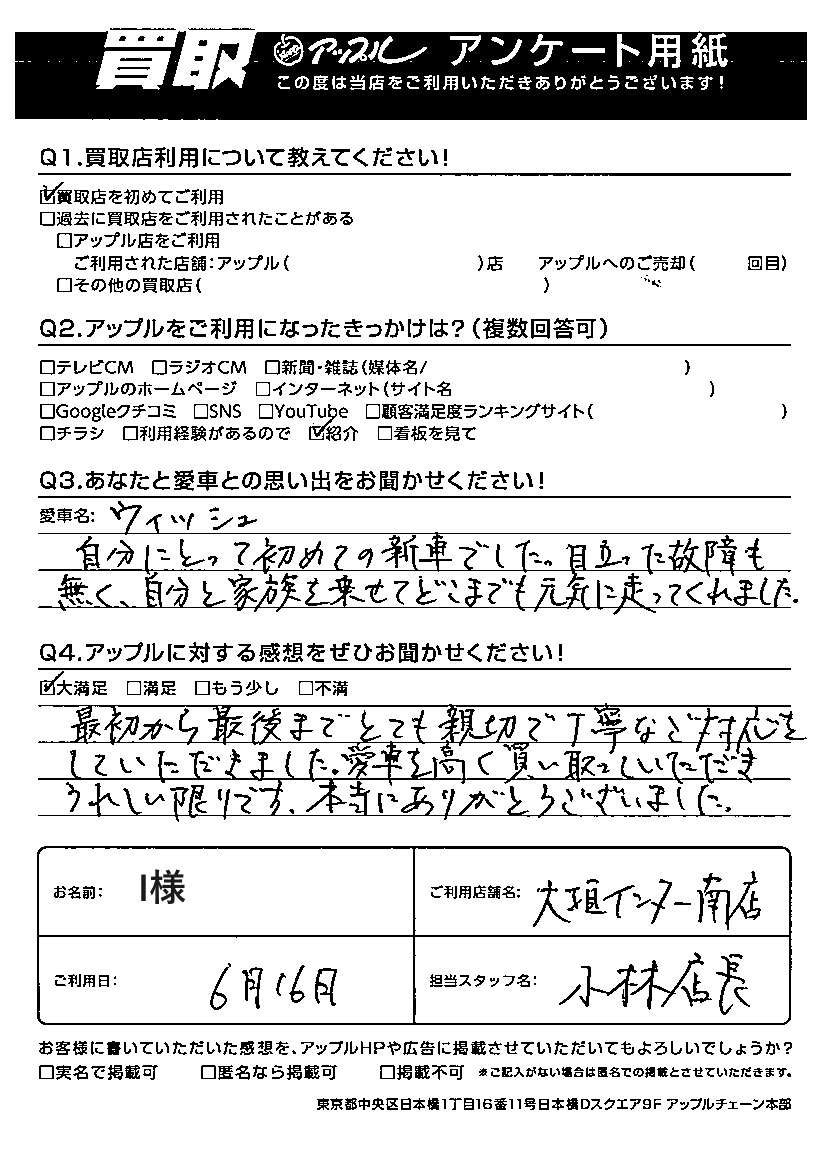 買取 アップル アンケート用紙
この度は当店をご利用いただきありがとうございます!
Q1.買取店利用について教えてください!
☑買取店を初めてご利用
□過去に買取店をご利用されたことがある
□アップル店をご利用
ご利用された店舗:アップル( )店 アップルへのご売却( 回目)
□その他の買取店( )
Q2.アップルをご利用になったきっかけは?(複数回答可)
□テレビCM □ラジオCM □新聞・雑誌(媒体名/ )
□アップルのホームページ □インターネット(サイト名 )
□Googleクチコミ □SNS □YouTube □顧客満足度ランキングサイト( )
□チラシ □利用経験があるので ☑紹介 □看板を見て
Q3.あなたと愛車との思い出をお聞かせください!
愛車名: ウィッシュ
自分にとって初めての新車でした。目立った故障も
無く、自分と家族を乗せてどこまでも元気に走ってくれました。
Q4.アップルに対する感想をぜひお聞かせください!
☑大満足 □満足 □もう少し □不満
最初から最後までとても親切で丁寧なご対応を
していただきました。愛車を高く買い取っていただき
うれしい限りです。本当にありがとうございました。
お名前: I様 ご利用店舗名: 大垣インター南店
ご利用日: 6月16日 担当スタッフ名: 小林店長
お客様に書いていただいた感想を、アップルHPや広告に掲載させていただいてもよろしいでしょうか?
□実名で掲載可 □匿名なら掲載可 □掲載不可 ※ご記入がない場合は匿名での掲載とさせていただきます。
東京都中央区日本橋1丁目16番11号日本橋Dスクエア9F アップルチェーン本部